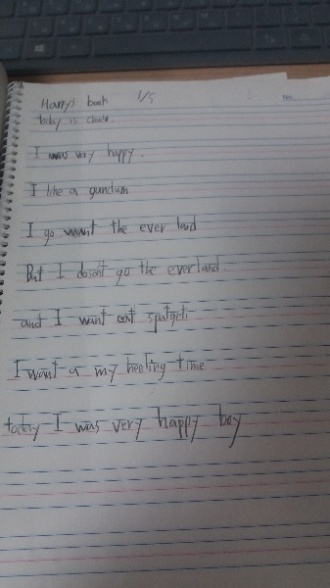 Harrys book 1/5
today is cloude.
I was very happy.
I like a gundum
I go want the ever land
But I doisn't go the everland.
and I want eat spatgeti
I want a my heeling time
today I was very happy boy